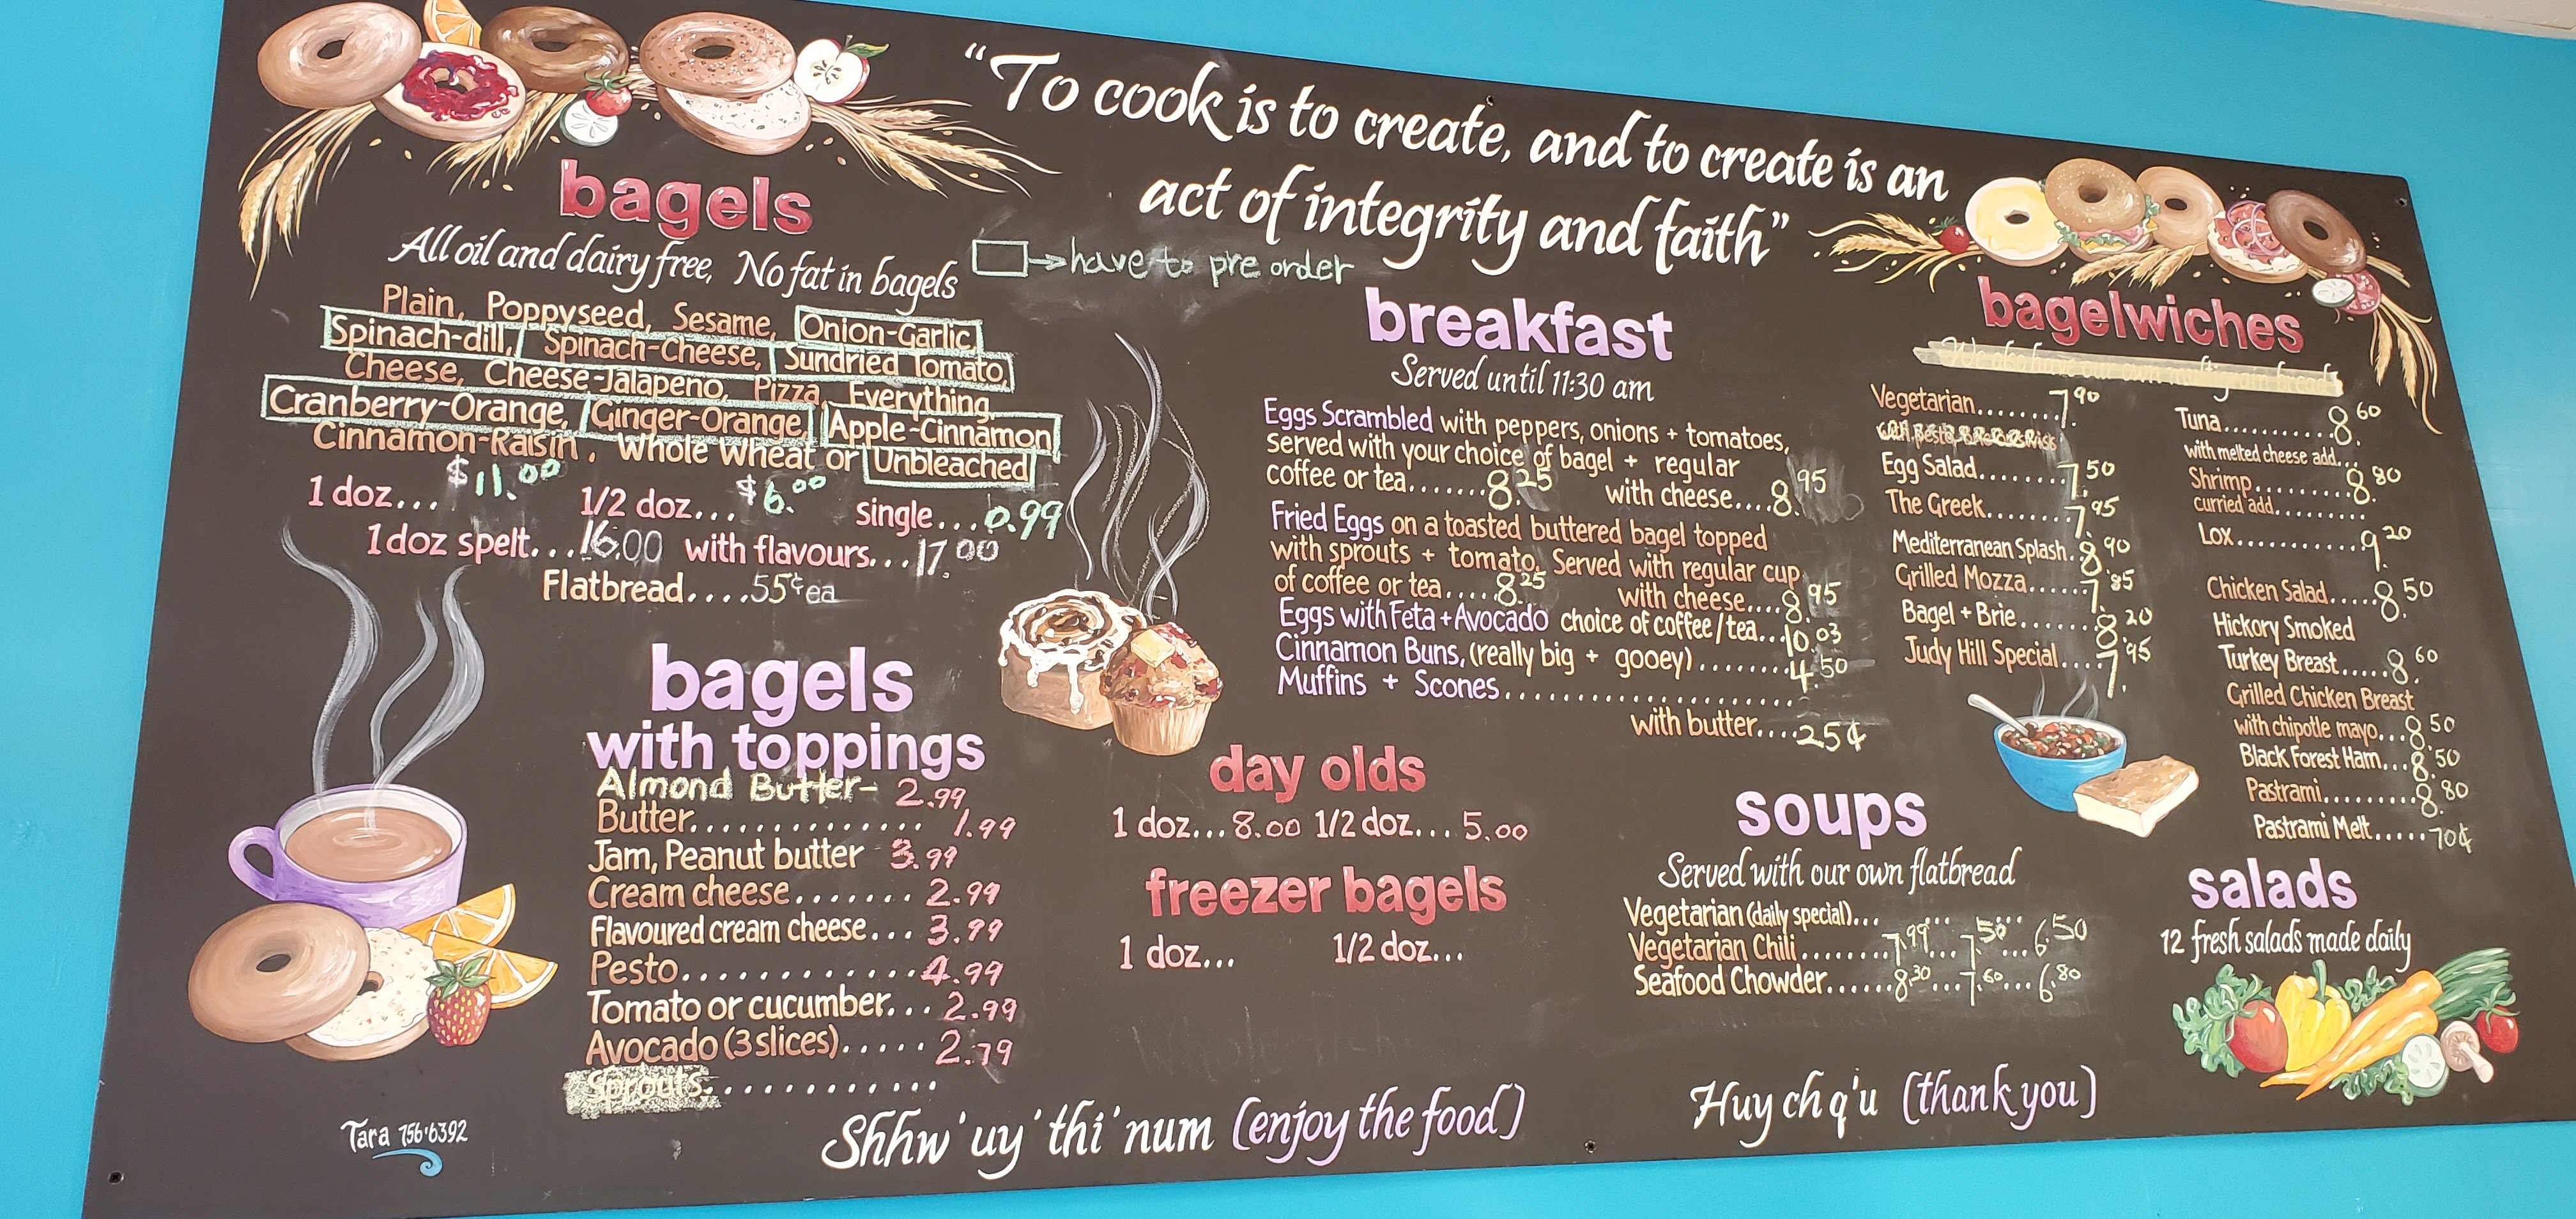 "To cook is to create, and to create is an
act of integrity and faith"
bagels
All oil and dairy free, No fat in bagels
□→ have to pre order
Plain, Poppyseed, Sesame, Onion-Garlic,
Spinach-dill, Spinach-Cheese, Sundried Tomato,
Cheese, Cheese-Jalapeno, Pizza, Everything,
Cranberry-Orange, Ginger-Orange, Apple-Cinnamon
Cinnamon-Raisin, Whole Wheat or Unbleached
1 doz... $11.00 1/2 doz... $6.00 single... 0.99
1 doz spelt... 16.00 with flavours... 17.00
Flatbread.... 55¢ ea
bagels
with toppings
Almond Butter- 2.99
Butter.............. 1.99
Jam, Peanut butter 3.99
Cream cheese....... 2.99
Flavoured cream cheese... 3.99
Pesto............ 4.99
Tomato or cucumber... 2.99
Avocado (3 slices)..... 2.79
Sprouts.............
Tara 756·6392
breakfast
Served until 11:30 am
Eggs Scrambled with peppers, onions + tomatoes,
served with your choice of bagel + regular
coffee or tea....... 8.25 with cheese.... 8.95
Fried Eggs on a toasted buttered bagel topped
with sprouts + tomato. Served with regular cup
of coffee or tea..... 8.25 with cheese.... 8.95
Eggs with Feta + Avocado choice of coffee/tea... 10.03
Cinnamon Buns, (really big + gooey)........ 4.50
Muffins + Scones......................
with butter.... 25¢
day olds
1 doz... 8.00 1/2 doz... 5.00
freezer bagels
1 doz... 1/2 doz...
soups
Served with our own flatbread
Vegetarian (daily special)... ... ...
Vegetarian Chili........ 7.99... 7.50... 6.50
Seafood Chowder...... 8.30... 7.60... 6.80
bagelwiches
Vegetarian........ 7.90
Egg Salad........ 7.50
The Greek........ 7.95
Mediterranean Splash. 8.90
Grilled Mozza....... 7.85
Bagel + Brie....... 8.20
Judy Hill Special.... 7.95
Tuna.......... 8.60
with melted cheese add...
Shrimp.......... 8.80
curried add..........
Lox............ 9.20
Chicken Salad..... 8.50
Hickory Smoked
Turkey Breast..... 8.60
Grilled Chicken Breast
with chipotle mayo... 8.50
Black Forest Ham... 8.50
Pastrami......... 8.80
Pastrami Melt..... 70¢
salads
12 fresh salads made daily
Shhw'uy'thi'num (enjoy the food)
Huy ch q'u (thank you)